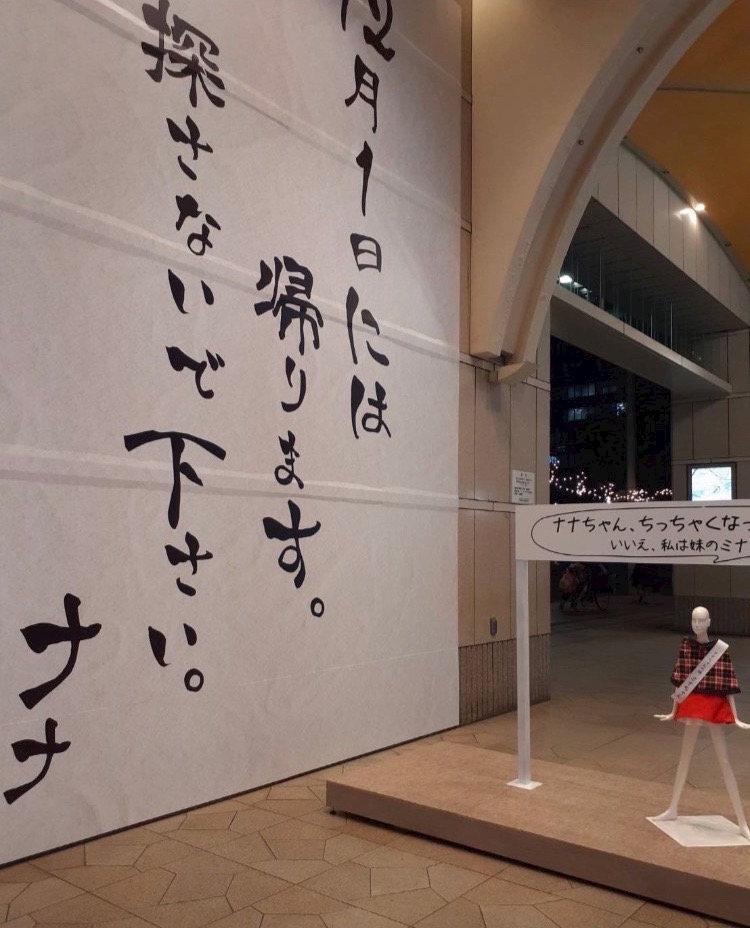 12月1日には
帰ります。
探さないで下さい。
ナナ
ナナちゃん、ちっちゃくなっ
いいえ、私は妹のミナ